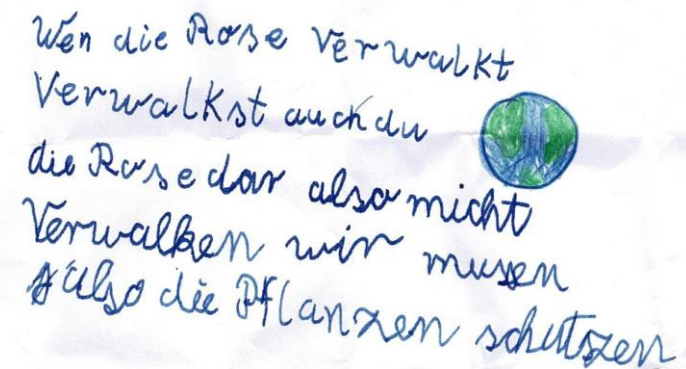 Wen die Rose verwalkt
Verwalkst auch du
die Rose dar also nicht
Verwalken wir mussen
also die Pflanzen schutszen